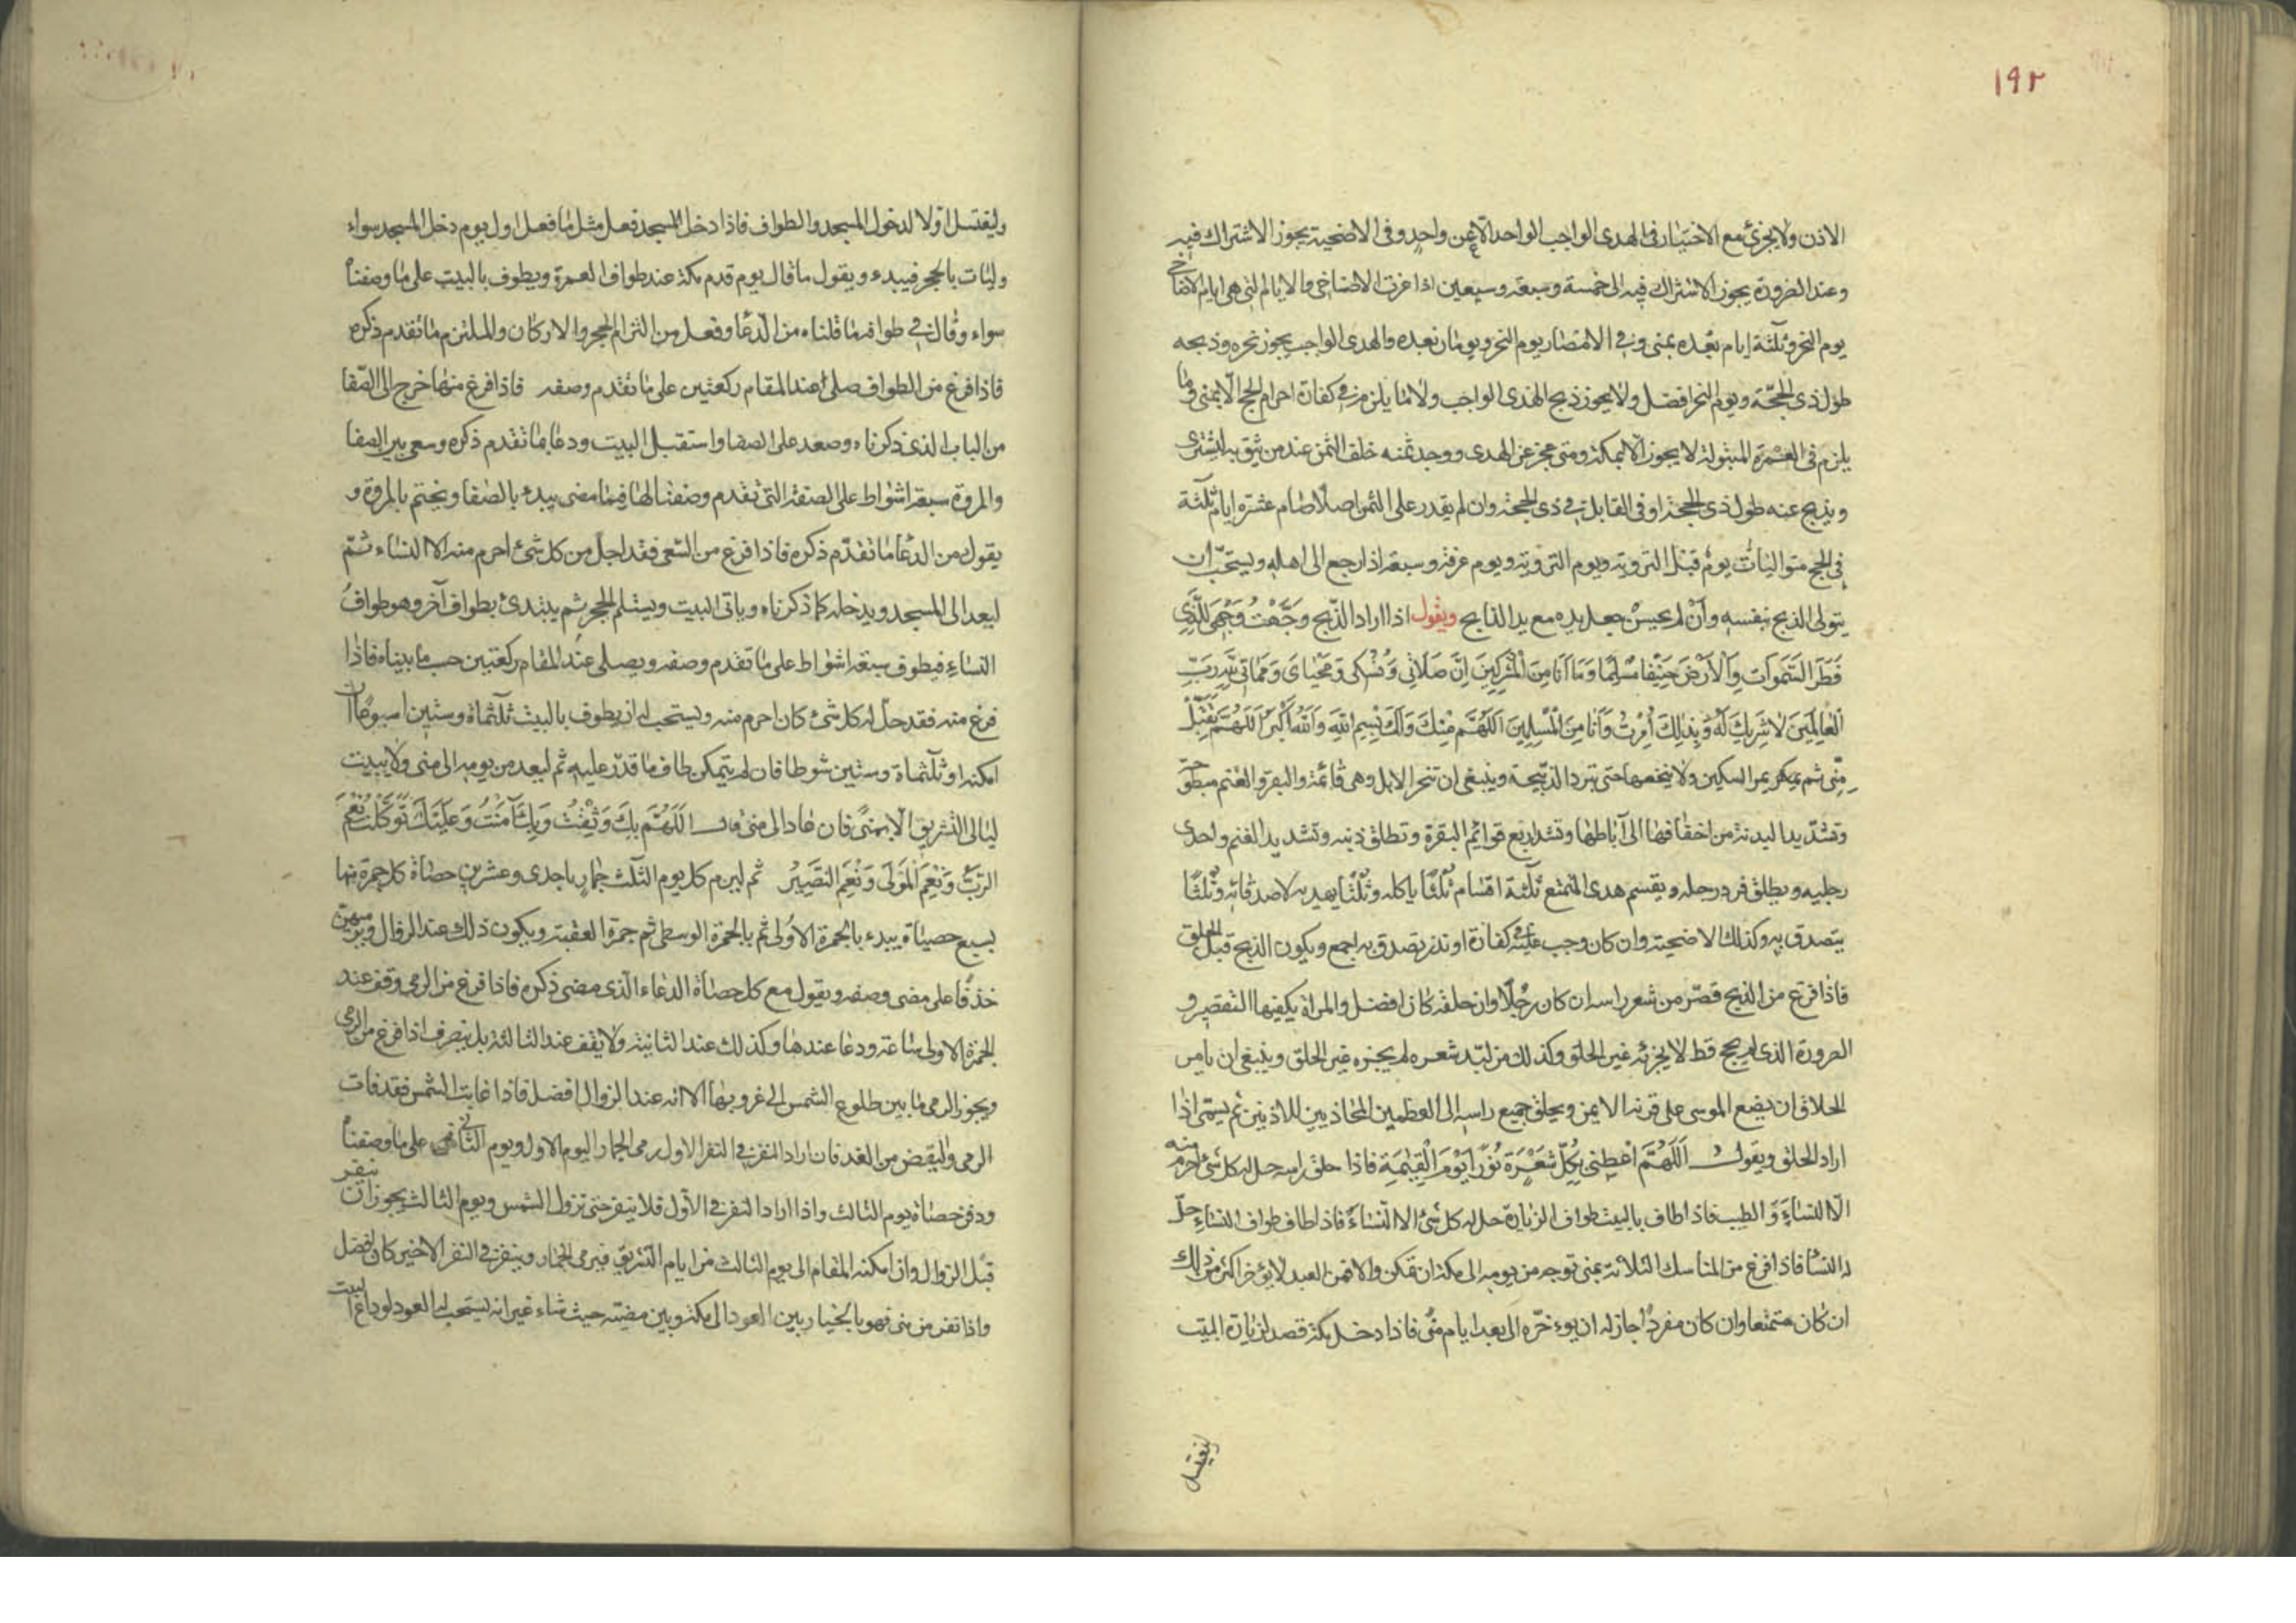 ١٩٢
الاذن ولا يجزئ مع الاختيار فى الهدى الواجب الواحد الا عن واحد وفى الاضحية يجوز الاشتراك فيه
وعند الضرورة يجوز الاشتراك فيه الى خمسة وسبعة وسبعين اذا عزت الاضاحى والايام التى هى ايام الاضاحى
يوم النحر وثلثة ايام بعده بمنى وفى الامصار يوم النحر ويومان بعده والهدى الواجب يجوز نحره وذبحه
طول ذى الحجّة ويوم النحر افضل ولا يجوز ذبح الهدى الواجب ولا ما يلزم فى كفارة احرام الحج الّا بمنى وما
يلزم فى العمرة المبتولة لا يجوز الّا بمكة ومتى عجز عن الهدى ووجد ثمنه خلف الثمن عند من يثق به ليشترى
ويذبح عنه طول ذى الحجة او فى القابل فى ذى الحجة وان لم يقدر على الثمن اصلًا صام عشرة ايام ثلثة
فى الحج متواليات يوم قبل التروية ويوم التروية ويوم عرفة وسبعة اذا رجع الى اهله ويستحبّ ان
يتولى الذبح بنفسه وان لم يحسن جعل يده مع يد الذابح ويقول اذا اراد الذّبح وَجَّهْتُ وَجْهِىَ لِلَّذِى
فَطَرَ السَّمٰوَاتِ وَالْاَرْضَ حَنِيْفًا مُسْلِمًا وَمَا اَنَا مِنَ الْمُشْرِكِينَ اِنَّ صَلَاتِى وَنُسُكِى وَمَحْيَاىَ وَمَمَاتِى لِلّٰهِ رَبِّ
الْعَالَمِيْنَ لَا شَرِيكَ لَهُ وَبِذٰلِكَ اُمِرْتُ وَاَنَا مِنَ الْمُسْلِمِينَ اَللّٰهُمَّ مِنْكَ وَلَكَ بِسْمِ اللّٰهِ وَاللّٰهُ اَكْبَرُ اَللّٰهُمَّ تَقَبَّلْ
مِنِّى ثم يمر السكين ولا ينخعها حتى تبرد الذبيحة وينبغى ان تنحر الابل وهى قائمة والبقر والغنم
وتشدّ يد البدنة من اخفافها الى آباطها وتشد اربع قوائم البقرة وتطلق ذنبه وتشد يد الغنم واحدى
رجليه ويطلق فرد رجله ويقسم هدى المتمتع ثلثة اقسام ثلثًا ياكله وثلثًا يهديه لاصدقائه وثلثًا
يتصدق به وكذلك الاضحية وان كان وجب عليه كفارة او نذر تصدق به اجمع ويكون الذبح قبل الحلق
فاذا فرغ من الذبح قصّر من شعر راسه ان كان رجلًا وان حلقه كان افضل والمراة يكفيها التقصير و
الصرورة الذى لم يحج قط لا يجزئه غير الحلق وكذلك من لبّد شعره لم يجزه غير الحلق وينبغى ان يامر
الحلاق ان يضع الموسى على قرنه الايمن ويحلق جميع راسه الى العظمين المحاذيين للاذنين ثم يسمّى اذا
اراد الحلق ويقول اَللّٰهُمَّ اَعْطِنِى بِكُلِّ شَعْرَةٍ نُوْرًا يَوْمَ الْقِيٰمَةِ فاذا حلق راسه حل له كل شئ احرم منه
الّا النساءَ وَالطيب فاذا طاف بالبيت طواف الزيارة حل له كل شئ الا النساءَ فاذا طاف طواف النساءِ حلّ
له النسا فاذا فرغ من المناسك الثلاثة بمنى توجه من يومه الى مكة ان تمكن والا فمن الغد لا يؤخر اكثر من ذلك
ان كان متمتعا وان كان مفردًا جاز له ان يوءخّره الى بعد ايام منًى فاذا دخل مكة قصد لزيارة البيت
ليغتسل
وليغتسل اوّلا لدخول المسجد والطواف فاذا دخل المسجد فعل مثل ما فعل اول يوم دخل المسجد سواء
وليات بالحجر فيبدء ويقول ما قال يوم قدم مكة عند طواف العمرة ويطوف بالبيت على ما وصفناه
سواء وقال فى طوافه ما قلناه من الدّعا وفعل من التزام الحجر والاركان والملتزم ما تقدم ذكره
فاذا فرغ من الطواف صلى عند المقام ركعتين على ما تقدم وصفه فاذا فرغ منها خرج الى الصّفا
من الباب الذى ذكرناه وصعد على الصفا واستقبل البيت ودعا بما تقدم ذكره وسعى بين الصفا
والمروة سبعة اشواط على الصفة التى تقدم وصفنا لها فيما مضى يبدء بالصفا ويختم بالمروة و
يقول من الدعا ما تقدّم ذكره فاذا فرغ من السّعى فقد احلّ من كل شئ احرم منه الا النساء ثمّ
ليعد الى المسجد ويدخله كما ذكرناه وياتى البيت ويستلم الحجر ثم يبتدئ بطواف آخر وهو طواف
النساءِ فيطوف سبعة اشواط على ما تقدم وصفه ويصلى عند المقام ركعتين حسب ما بيناه فاذا
فرغ منه فقد حلّ له كل شئ كان احرم منه ويستحب له ان يطوف بالبيت ثلثمائة وستين اسبوعًا ان
امكنه او ثلثمائة وستين شوطا فان لم يتمكن طاف ما قدر عليه ثم ليعد من يومه الى منى ولا يبيت
ليالى التشريق الّا بمنىً فان عاد الى منى قال اَللّٰهُمَّ بِكَ وَثِقْتُ وَبِكَ آمَنْتُ وَعَلَيْكَ تَوَكَّلْتُ نِعْمَ
الرَّبُّ وَنِعْمَ الْمَوْلَى وَنِعْمَ النَّصِيْرُ ثم ليرم كل يوم الثّلث جمارٍ باحدى وعشرين حصاة كل جمرة منها
بسبع حصياة يبدء بالجمرة الاولى ثم بالجمرة الوسطى ثم جمرة العقبة ويكون ذلك عند الزوال ويرميهن
خذفًا على مضى وصفه ويقول مع كل حصاة الدعاء الّذى مضى ذكره فاذا فرغ من الرمى وقف عند
الجمرة الاولى ساعة ودعا عندها وكذلك عند الثانية ولا يقف عند الثالثة بل ينصرف اذا فرغ من الرمى
ويجوز الرمى ما بين طلوع الشمس الى غروبها الا انه عند الزوال افضل فاذا غابت الشمس فقد فات
الرمى وليقض من الغد فان اراد النفر فى النفر الاول رمى الجمار اليوم الاول ويوم الثانى على ما وصفناه
ودفن حصاة يوم الثالث واذا اراد النفر فى الاوّل فلا ينفر حتى تزول الشمس ويوم الثالث يجوز ان ينفر
قبل الزوال وان امكنه المقام الى يوم الثالث من ايام التشريق فيرمى الجمار وينفر فى النفر الاخير كان افضل
واذا نفر من منى فهو بالخيار بين العود الى مكة وبين مضيّه حيث شاء غير انه يستحب له العود لوداع البيت